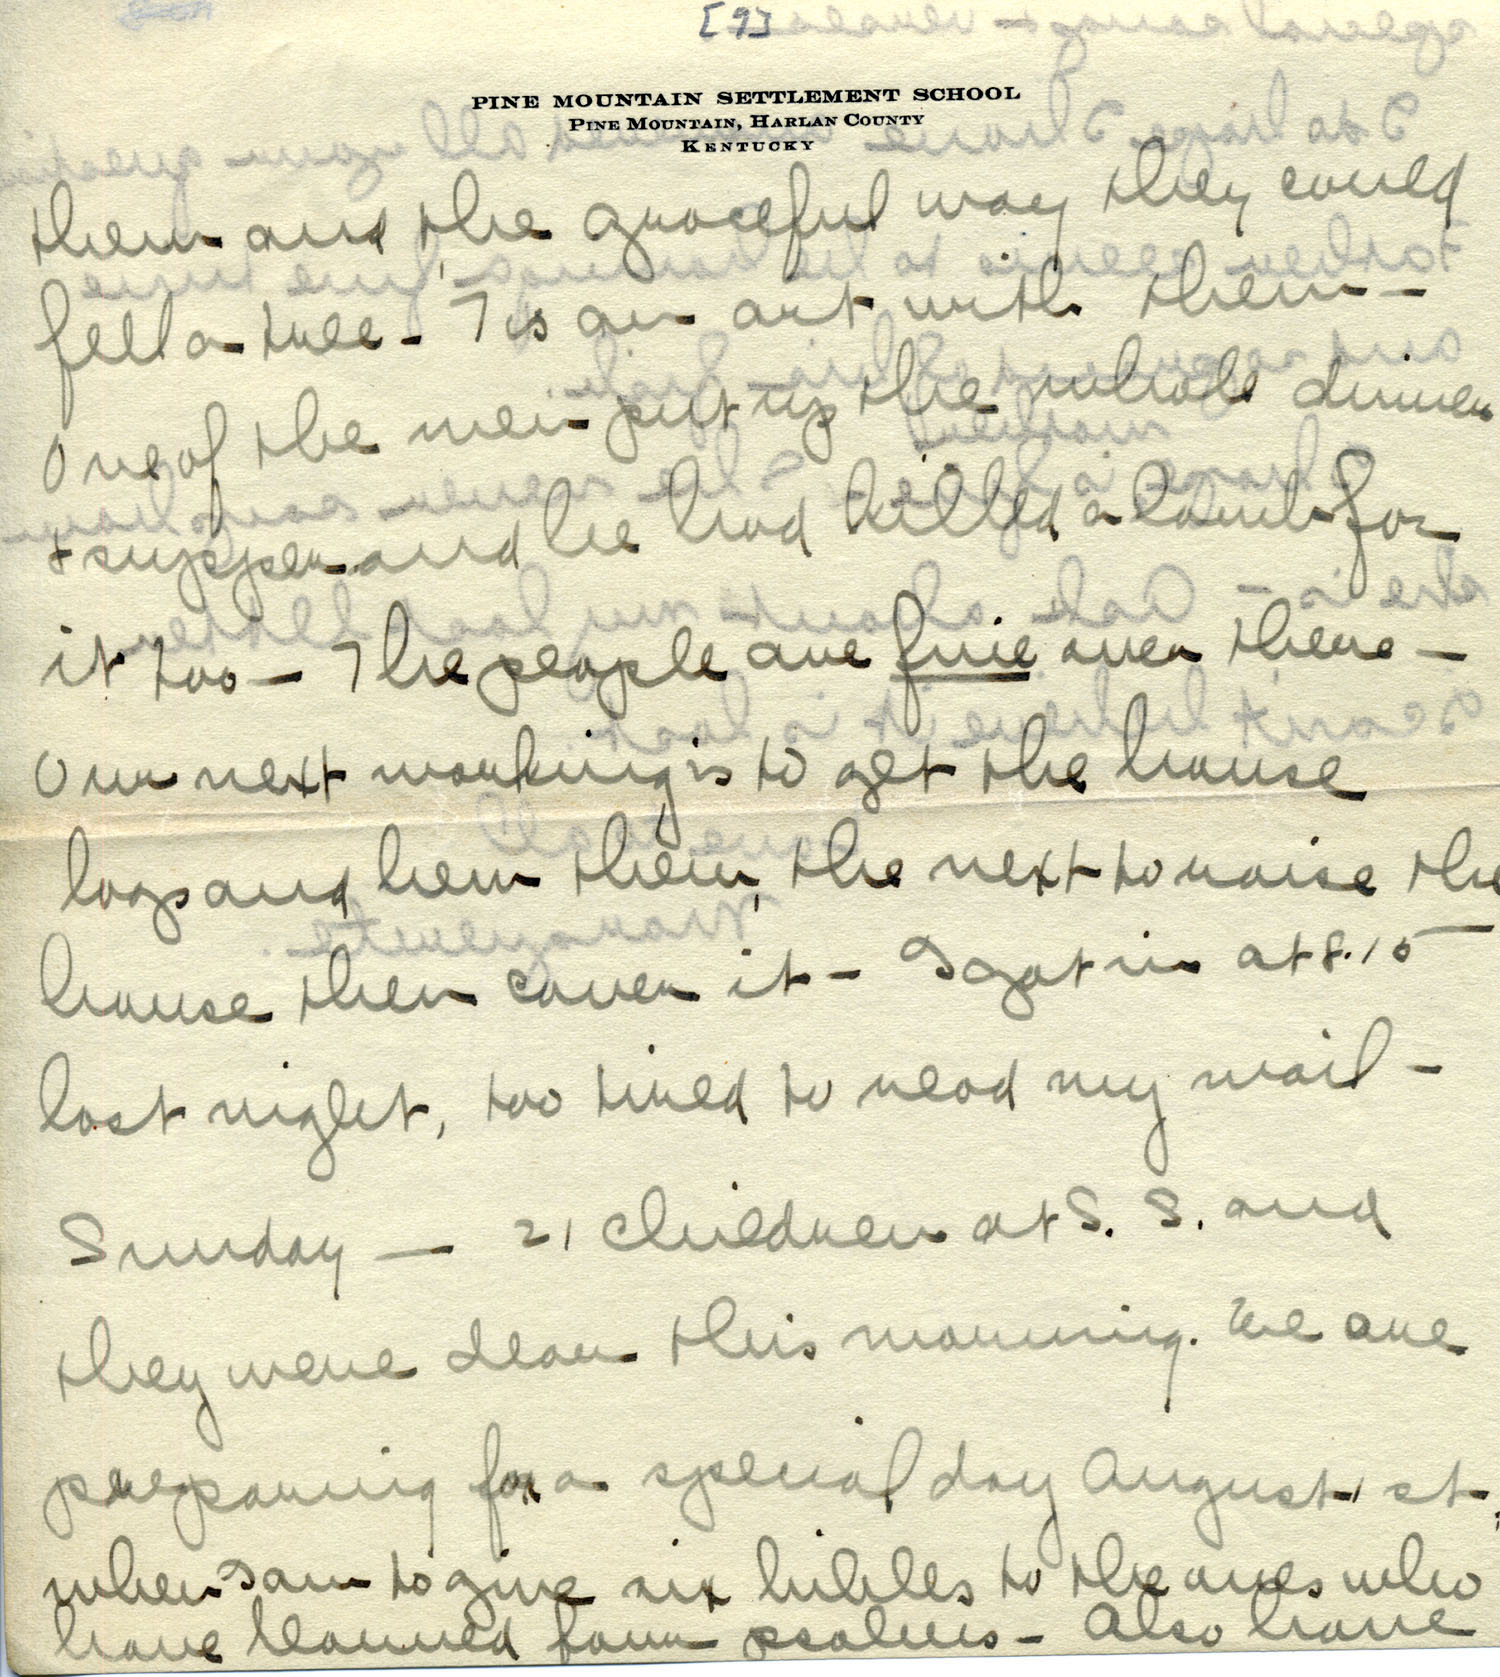 [9]
PINE MOUNTAIN SETTLEMENT SCHOOL
PINE MOUNTAIN, HARLAN COUNTY
KENTUCKY
them and, the graceful way they could
fell a tree - Tis an art with them -
One of the men put up the whole dinner
+ supper and he had killed a lamb for
it too - The people are fine over there -
Our next working is to get the house
logs and hew them, the next to raise the
house then cover it - I got in at 8.15
last night, too tired to read my mail -
Sunday - 21 children at S. S. and
they were dear this morning. We are
preparing for a special day August 1st,
when I am to give six bibles to the ones who
have learned four psalms - Also have